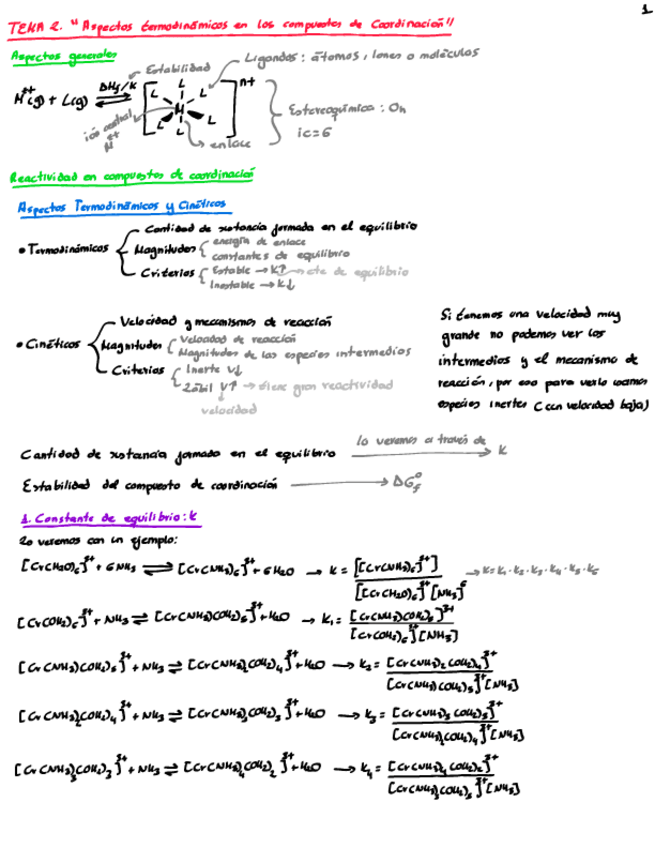 1
TEMA 2. "Aspectos termodinámicos en los compuestos de Coordinación"
Aspectos generales
Estabilidad
Ligandos: átomos, iones o moléculas
M^{z+}(g) + L(g) ⇌ [ML L L L L L]^{n+}
ΔHf/K
ión central M^{z+}
enlace
Estereoquímica: Oh
ic=6
Reactividad en compuestos de coordinación
Aspectos Termodinámicos y Cinéticos
• Termodinámicos
Cantidad de sustancia formada en el equilibrio
Magnitudes
energía de enlace
constantes de equilibrio
Criterios
Estable → K↑ → cte de equilibrio
Inestable → K↓
• Cinéticos
Velocidad y mecanismos de reacción
Magnitudes
Velocidad de reacción
Magnitudes de las especies intermedios
Criterios
Inerte V↓
Lábil V↑ → tiene gran reactividad
velocidad
Si tenemos una velocidad muy
grande no podemos ver los
intermedios y el mecanismo de
reacción, por eso para verlo usamos
especies inertes (con velocidad baja)
Cantidad de sustancia formado en el equilibrio lo veremos a través de → K
Estabilidad del compuesto de coordinación → ΔG°f
1. Constante de equilibrio: K
Lo veremos con un ejemplo:
[Cr(H2O)6]^{3+} + 6NH3 ⇌ [Cr(NH3)6]^{3+} + 6H2O → K = [[Cr(NH3)6]^{3+}] / [[Cr(H2O)6]^{3+}][NH3]^6 → K=K1·K2·K3·K4·K5·K6
[Cr(OH2)6]^{3+} + NH3 ⇌ [Cr(NH3)(OH2)5]^{3+} + H2O → K1 = [Cr(NH3)(OH2)5]^{3+} / [Cr(OH2)6]^{3+}[NH3]
[Cr(NH3)(OH2)5]^{3+} + NH3 ⇌ [Cr(NH3)2(OH2)4]^{3+} + H2O → K2 = [Cr(NH3)2(OH2)4]^{3+} / [Cr(NH3)(OH2)5]^{3+}[NH3]
[Cr(NH3)2(OH2)4]^{3+} + NH3 ⇌ [Cr(NH3)3(OH2)3]^{3+} + H2O → K3 = [Cr(NH3)3(OH2)3]^{3+} / [Cr(NH3)2(OH2)4]^{3+}[NH3]
[Cr(NH3)3(OH2)3]^{3+} + NH3 ⇌ [Cr(NH3)4(OH2)2]^{3+} + H2O → K4 = [Cr(NH3)4(OH2)2]^{3+} / [Cr(NH3)3(OH2)3]^{3+}[NH3]